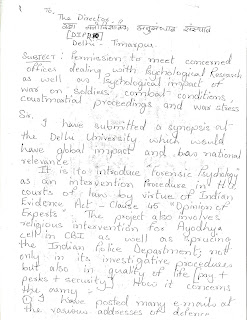 To,
The Director,
रक्षा मनोविज्ञान अनुसंधान संस्थान
[DIPR]
Delhi - Timarpur
SUBJECT: Permission to meet concerned
officer dealing with Psychological Research
as well as Psychological impact of
war on soldiers, combat conditions,
courtmartial proceedings and war stress
Sir,
I have submitted a synopsis at
the Delhi University which would
have global impact and has national
relevance.
It is to introduce "Forensic Psychology"
as an intervention Procedure in the
courts of law by virtue of Indian
Evidence Act - Clause 45 "Opinion of
Experts". The project also involves
religious intervention for Ayodhya
cell in CBI as well as sprucing
the Indian Police Department; not
only in its investigative procedures
but also in quality of life (pay +
perks + security). How it concerns
the army:-
① I have posted many emails at
the various addresses of defence